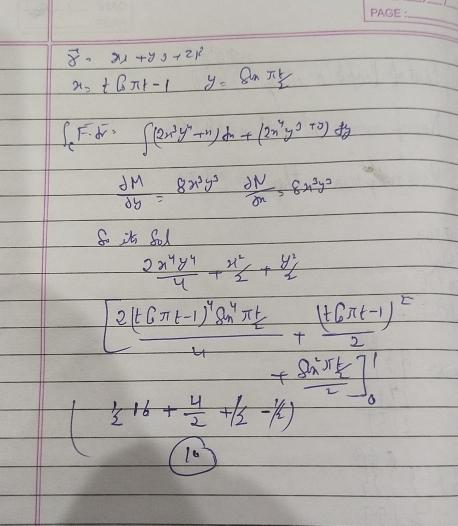 PAGE:
r̄ = xi + yj + zk
x = t Cos πt - 1    y = Sin πt/2
∫c F̄. dr̄ = ∫(2x³y⁴ + x) dx + (2x⁴y³ + y) dy
∂M/∂y = 8x³y³    ∂N/∂x = 8x³y³
So its Sol
2x⁴y⁴/4 + x²/2 + y²/2
[2(t Cos πt - 1)⁴ Sin⁴ πt/2 / 4 + (t Cos πt - 1)²/2
+ Sin² πt/2 / 2]₀¹
(½ 16 + 4/2 + ½ - ½)
10